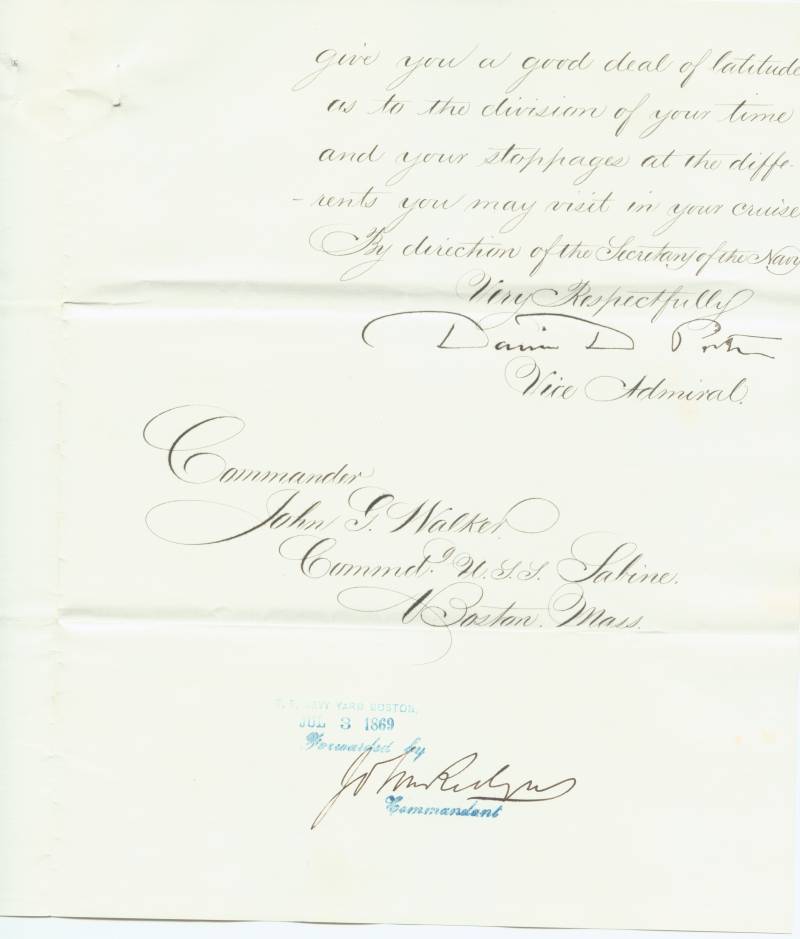 give you a good deal of latitude
as to the division of your time
and your stoppages at the diffe-
-rents you may visit in your cruise
By direction of the Secretary of the Navy
Very Respectfully
David D Porter
Vice Admiral.
Commander
John G. Walker.
Commdg. U.S.S. Sabine.
Boston. Mass.
U. S. NAVY YARD BOSTON,
JUL 3 1869
Forwarded by
John Rodgers
Commandant